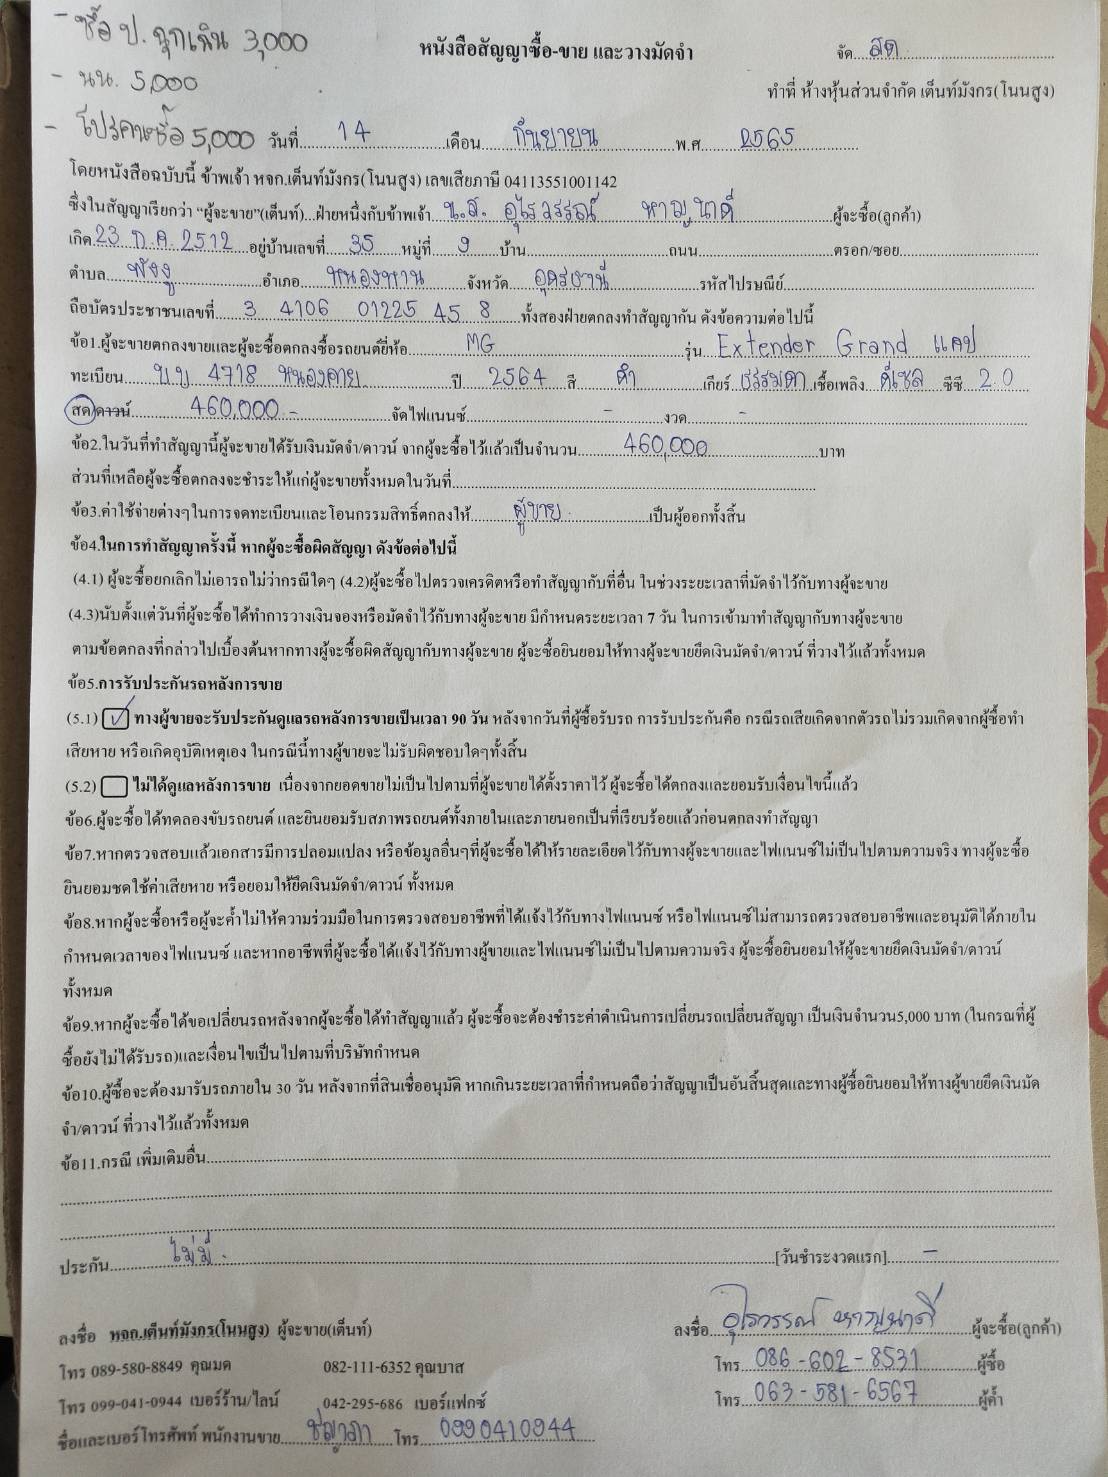 - ซื้อ ป. ฉุกเฉิน 3,000
- นน. 5,000
- โปรคนซื้อ 5,000
หนังสือสัญญาซื้อ-ขาย และวางมัดจำ
จัด...สด...
ทำที่ ห้างหุ้นส่วนจำกัด เต็นท์มังกร(โนนสูง)
วันที่...14...เดือน...กันยายน...พ.ศ...2565...
โดยหนังสือฉบับนี้ ข้าพเจ้า หจก.เต็นท์มังกร(โนนสูง) เลขเสียภาษี 04113551001142
ซึ่งในสัญญาเรียกว่า "ผู้จะขาย"(เต็นท์)...ฝ่ายหนึ่งกับข้าพเจ้า...น.ส. อุไรวรรณ์ หาญนาดี...ผู้จะซื้อ(ลูกค้า)
เกิด...23 ก.ค. 2512...อยู่บ้านเลขที่...35...หมู่ที่...9...บ้าน...ถนน...ตรอก/ซอย...
ตำบล...พังงู...อำเภอ...หนองหาน...จังหวัด...อุดรธานี...รหัสไปรษณีย์...
ถือบัตรประชาชนเลขที่...3 4106 01225 45 8...ทั้งสองฝ่ายตกลงทำสัญญากัน ดังข้อความต่อไปนี้
ข้อ1.ผู้จะขายตกลงขายและผู้จะซื้อตกลงซื้อรถยนต์ยี่ห้อ...MG...รุ่น...Extender Grand แคป
ทะเบียน...บบ 4718 หนองคาย...ปี 2564 สี ดำ...เกียร์ ธรรมดา เชื้อเพลิง ดีเซล ซีซี 2.0
สด/ดาวน์...460,000.-...จัดไฟแนนซ์...-...งวด...-...
ข้อ2.ในวันที่ทำสัญญานี้ผู้จะขายได้รับเงินมัดจำ/ดาวน์ จากผู้จะซื้อไว้แล้วเป็นจำนวน...460,000...บาท
ส่วนที่เหลือผู้จะซื้อตกลงจะชำระให้แก่ผู้จะขายทั้งหมดในวันที่...
ข้อ3.ค่าใช้จ่ายต่างๆในการจดทะเบียนและโอนกรรมสิทธิ์ตกลงให้...ผู้ขาย...เป็นผู้ออกทั้งสิ้น
ข้อ4.ในการทำสัญญาครั้งนี้ หากผู้จะซื้อผิดสัญญา ดังข้อต่อไปนี้
(4.1) ผู้จะซื้อยกเลิกไม่เอารถไม่ว่ากรณีใดๆ (4.2)ผู้จะซื้อไปตรวจเครดิตหรือทำสัญญากับที่อื่น ในช่วงระยะเวลาที่มัดจำไว้กับทางผู้จะขาย
(4.3)นับตั้งแต่วันที่ผู้จะซื้อได้ทำการวางเงินจองหรือมัดจำไว้กับทางผู้จะขาย มีกำหนดระยะเวลา 7 วัน ในการเข้ามาทำสัญญากับทางผู้จะขาย
ตามข้อตกลงที่กล่าวไปเบื้องต้นหากทางผู้จะซื้อผิดสัญญากับทางผู้จะขาย ผู้จะซื้อยินยอมให้ทางผู้จะขายยึดเงินมัดจำ/ดาวน์ ที่วางไว้แล้วทั้งหมด
ข้อ5.การรับประกันรถหลังการขาย
(5.1) ☑ ทางผู้ขายจะรับประกันดูแลรถหลังการขายเป็นเวลา 90 วัน หลังจากวันที่ผู้ซื้อรับรถ การรับประกันคือ กรณีรถเสียเกิดจากตัวรถไม่รวมเกิดจากผู้ซื้อทำ
เสียหาย หรือเกิดอุบัติเหตุเอง ในกรณีนี้ทางผู้ขายจะไม่รับผิดชอบใดๆทั้งสิ้น
(5.2) ☐ ไม่ได้ดูแลหลังการขาย เนื่องจากยอดขายไม่เป็นไปตามที่ผู้จะขายได้ตั้งราคาไว้ ผู้จะซื้อได้ตกลงและยอมรับเงื่อนไขนี้แล้ว
ข้อ6.ผู้จะซื้อได้ทดลองขับรถยนต์ และยินยอมรับสภาพรถยนต์ทั้งภายในและภายนอกเป็นที่เรียบร้อยแล้วก่อนตกลงทำสัญญา
ข้อ7.หากตรวจสอบแล้วเอกสารมีการปลอมแปลง หรือข้อมูลอื่นๆที่ผู้จะซื้อได้ให้รายละเอียดไว้กับทางผู้จะขายและไฟแนนซ์ไม่เป็นไปตามความจริง ทางผู้จะซื้อ
ยินยอมชดใช้ค่าเสียหาย หรือยอมให้ยึดเงินมัดจำ/ดาวน์ ทั้งหมด
ข้อ8.หากผู้จะซื้อหรือผู้จะค้ำไม่ให้ความร่วมมือในการตรวจสอบอาชีพที่ได้แจ้งไว้กับทางไฟแนนซ์ หรือไฟแนนซ์ไม่สามารถตรวจสอบอาชีพและอนุมัติได้ภายใน
กำหนดเวลาของไฟแนนซ์ และหากอาชีพที่ผู้จะซื้อได้แจ้งไว้กับทางผู้ขายและไฟแนนซ์ไม่เป็นไปตามความจริง ผู้จะซื้อยินยอมให้ผู้จะขายยึดเงินมัดจำ/ดาวน์
ทั้งหมด
ข้อ9.หากผู้จะซื้อได้ขอเปลี่ยนรถหลังจากผู้จะซื้อได้ทำสัญญาแล้ว ผู้จะซื้อจะต้องชำระค่าดำเนินการเปลี่ยนรถเปลี่ยนสัญญา เป็นเงินจำนวน5,000 บาท (ในกรณที่ผู้
ซื้อยังไม่ได้รับรถ)และเงื่อนไขเป็นไปตามที่บริษัทกำหนด
ข้อ10.ผู้ซื้อจะต้องมารับรถภายใน 30 วัน หลังจากที่สินเชื่ออนุมัติ หากเกินระยะเวลาที่กำหนดถือว่าสัญญาเป็นอันสิ้นสุดและทางผู้ซื้อยินยอมให้ทางผู้ขายยึดเงินมัด
จำ/ดาวน์ ที่วางไว้แล้วทั้งหมด
ข้อ11.กรณี เพิ่มเติมอื่น...
ประกัน...ไม่มี...[วันชำระงวดแรก]...-...
ลงชื่อ หจก.เต็นท์มังกร(โนนสูง) ผู้จะขาย(เต็นท์)
ลงชื่อ...อุไรวรรณ์ หาญนาดี...ผู้จะซื้อ(ลูกค้า)
โทร 089-580-8849 คุณมด 082-111-6352 คุณบาส
โทร...086-602-8531...ผู้ซื้อ
โทร 099-041-0944 เบอร์ร้าน/ไลน์ 042-295-686 เบอร์แฟกซ์
โทร...063-581-6567...ผู้ค้ำ
ชื่อและเบอร์โทรศัพท์ พนักงานขาย...ชญาภา...โทร...0990410944